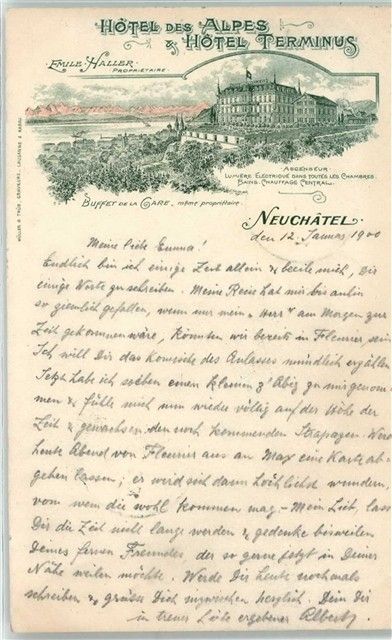 HÔTEL DES ALPES
& HÔTEL TERMINUS
EMILE HALLER
PROPRIÉTAIRE.
ASCENSEUR
LUMIÈRE ELECTRIQUE DANS TOUTES LES CHAMBRES.
BAINS. CHAUFFAGE CENTRAL.
BUFFET DE LA GARE. même propriétaire.
MÜLLER & TRÜB, LAUSANNE & AARAU.
NEUCHÂTEL,
den 12. Januar 1900
Meine liebe Emma!
Endlich bin ich einige Zeit allein & beeile mich, Dir
einige Worte zu schreiben. Meine Reise hat mir bis anhin
so ziemlich gefallen, wenn nur mein "Herr" am Morgen zur
Zeit gekommen wäre, könnten wir bereits in Fleurier sein
Ich will Dir das Komische des Anlasses mündlich erzählen
Jetzt habe ich soeben einen kleinen z'Abig zu mir genom
men & fühle mich nun wieder völlig auf der Höhe der
Zeit & gewachsen den noch kommenden Strapazen. Werde
heute Abend von Fleurier aus an Max eine Karte ab
gehen lassen; er wird sich dann köstlichst wundern,
von wem die wohl kommen mag - Mein Lieb, lass
Dir die Zeit nicht lange werden & gedenke bisweilen
Deines fernen Freundes, der so gerne jetzt in Deiner
Nähe weilen möchte. Werde Dir heute nochmals
schreiben & grüsse Dich inzwischen herzlich. Dein Dir
in treuer Liebe ergebener Albert.